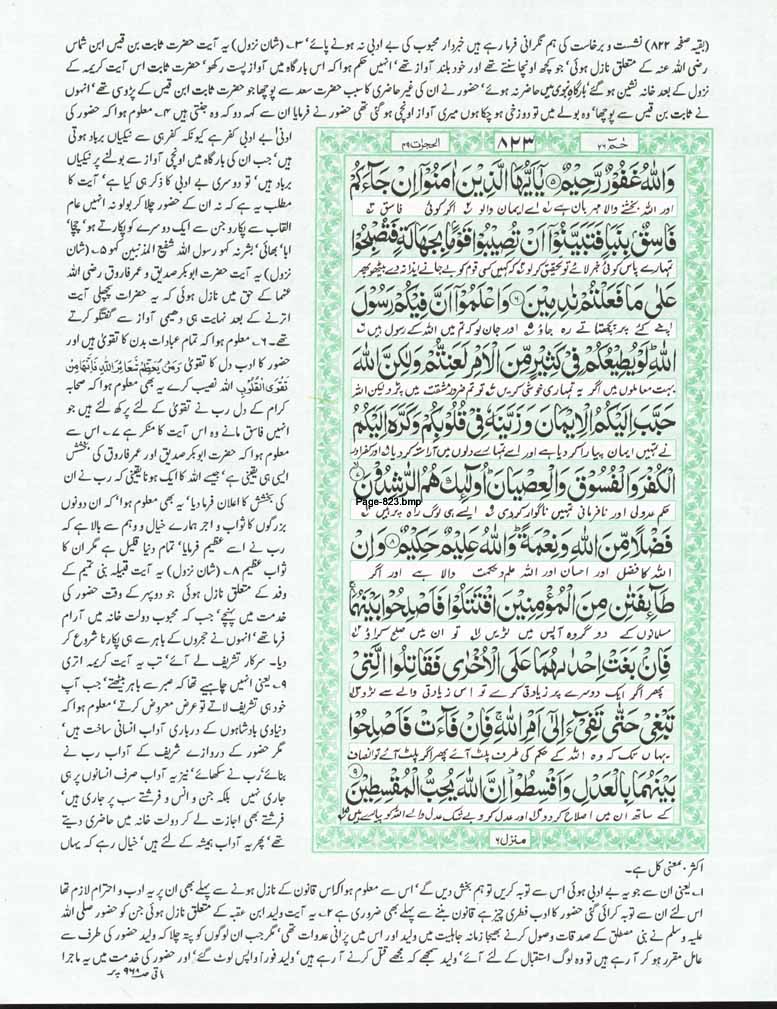 (بقیہ صفحہ ۸۲۲) نشست و برخاست کی ہم نگرانی فرما رہے ہیں خبردار محبوب کی بے ادبی نہ ہونے پائے' ۳۔ (شان نزول) یہ آیت حضرت ثابت بن قیس ابن شماس
رضی اللہ عنہ کے متعلق نازل ہوئی' جو کچھ اونچا سنتے تھے اور خود بلند آواز تھے' انہیں حکم ہوا کہ اس بارگاہ میں آواز پست رکھو' حضرت ثابت اس آیت کریمہ کے
نزول کے بعد خانہ نشین ہو گئے' بارگاہ نبوی میں حاضر نہ ہوئے' حضور نے ان کی غیر حاضری کا سبب حضرت سعد سے پوچھا جو حضرت ثابت ابن قیس کے پڑوسی تھے' انہوں
نے ثابت بن قیس سے پوچھا' وہ بولے میں تو دوزخی ہو چکا ہوں میری آواز اونچی ہو گئی تھی حضور نے فرمایا ان سے کہہ دو کہ وہ جنتی ہیں ۴۔ معلوم ہوا کہ حضور کی
ادنیٰ بے ادبی کفر ہے کیونکہ کفر ہی سے نیکیاں برباد ہوتی
ہیں' جب ان کی بارگاہ میں اونچی آواز سے بولنے پر نیکیاں
برباد ہیں' تو دوسری بے ادبی کا ذکر ہی کیا ہے' آیت کا
مطلب یہ ہے کہ نہ ان کے حضور چلا کر بولو نہ انہیں عام
القاب سے پکارو جن سے ایک دوسرے کو پکارتے ہو' چچا'
ابا' بھائی' بشر نہ کہو رسول اللہ شفیع المذنبین کہو ۵۔ (شان
نزول) یہ آیت حضرت ابوبکر صدیق و عمر فاروق رضی اللہ
عنہما کے حق میں نازل ہوئی کہ یہ حضرات پچھلی آیت
اترنے کے بعد نہایت ہی دھیمی آواز سے گفتگو کرتے
تھے۔ ۶۔ معلوم ہوا کہ تمام عبادات بدن کا تقویٰ ہیں اور
حضور کا ادب دل کا تقویٰ وَمَنْ يُعَظِّمْ شَعَائِرَ اللّٰهِ فَاِنَّهَا مِنْ
تَقْوَى الْقُلُوْبِ اللہ نصیب کرے یہ بھی معلوم ہوا کہ صحابہ
کرام کے دل رب نے تقویٰ کے لئے پرکھ لئے ہیں جو
انہیں فاسق مانے وہ اس آیت کا منکر ہے ۷۔ اس سے
معلوم ہوا کہ حضرت ابوبکر صدیق اور عمر فاروق کی بخشش
ایسی ہی یقینی ہے' جیسے اللہ کا ایک ہونا یقینی کہ رب نے ان
کی بخشش کا اعلان فرما دیا' یہ بھی معلوم ہوا' کہ ان دونوں
بزرگوں کا ثواب و اجر ہمارے خیال و وہم سے بالا ہے کہ
رب نے اسے عظیم فرمایا' تمام دنیا قلیل ہے مگر ان کا
ثواب عظیم ۸۔ (شان نزول) یہ آیت قبیلہ بنی تمیم کے
وفد کے متعلق نازل ہوئی جو دوپہر کے وقت حضور کی
خدمت میں پہنچے' جب کہ محبوب دولت خانہ میں آرام
فرما تھے' انہوں نے حجروں کے باہر سے ہی پکارنا شروع کر
دیا۔ سرکار تشریف لے آئے' تب یہ آیت کریمہ اتری
۹۔ یعنی انہیں چاہیے تھا کہ صبر سے باہر بیٹھتے' جب آپ
خود ہی تشریف لاتے تو عرض معروض کرتے' معلوم ہوا کہ
دنیاوی بادشاہوں کے درباری آداب انسانی ساخت ہیں'
مگر حضور کے دروازے شریف کے آداب رب نے
بنائے' رب نے سکھائے' نیز یہ آداب صرف انسانوں پر ہی
جاری نہیں بلکہ جن و انس و فرشتے سب پر جاری ہیں'
فرشتے بھی اجازت لے کر دولت خانہ میں حاضری دیتے
تھے' پھر یہ آداب ہمیشہ کے لئے ہیں' خیال رہے کہ یہاں
حٰمٓ ۲۶
۸۲۳
الحجرات ۴۹
وَاللّٰهُ غَفُوْرٌ رَّحِيْمٌ ۵ يٰۤاَيُّهَا الَّذِيْنَ اٰمَنُوْۤا اِنْ جَآءَكُمْ
اور اللہ بخشنے والا مہربان ہے اے ایمان والو اگر کوئی فاسق
فَاسِقٌۢ بِنَبَاٍ فَتَبَيَّنُوْۤا اَنْ تُصِيْبُوْا قَوْمًۢا بِجَهَالَةٍ فَتُصْبِحُوْا
تمہارے پاس کوئی خبر لائے تو تحقیق کر لو کہ کہیں کسی قوم کو بے جانے ایذا نہ دے بیٹھو پھر
عَلٰى مَا فَعَلْتُمْ نٰدِمِيْنَ ۶ وَاعْلَمُوْۤا اَنَّ فِيْكُمْ رَسُوْلَ
اپنے کئے پر پچھتاتے رہ جاؤ اور جان لو کہ تم میں اللہ کے رسول ہیں
اللّٰهِ لَوْ يُطِيْعُكُمْ فِيْ كَثِيْرٍ مِّنَ الْاَمْرِ لَعَنِتُّمْ وَلٰكِنَّ اللّٰهَ
بہت معاملوں میں اگر یہ تمہاری خوشی کریں تو تم ضرور مشقت میں پڑو لیکن اللہ
حَبَّبَ اِلَيْكُمُ الْاِيْمَانَ وَزَيَّنَهٗ فِيْ قُلُوْبِكُمْ وَكَرَّهَ اِلَيْكُمُ
نے تمہیں ایمان پیارا کر دیا ہے اور اسے تمہارے دلوں میں آراستہ کر دیا اور کفر اور
الْكُفْرَ وَالْفُسُوْقَ وَالْعِصْيَانَ اُولٰٓئِكَ هُمُ الرّٰشِدُوْنَ ۷
Page-823.bmp
حکم عدولی اور نافرمانی تمہیں ناگوار کر دی ایسے ہی لوگ راہ پر ہیں
فَضْلًا مِّنَ اللّٰهِ وَنِعْمَةً وَاللّٰهُ عَلِيْمٌ حَكِيْمٌ ۸ وَاِنْ
اللہ کا فضل اور احسان اور اللہ علم و حکمت والا ہے اور اگر
طَآئِفَتٰنِ مِنَ الْمُؤْمِنِيْنَ اقْتَتَلُوْا فَاَصْلِحُوْا بَيْنَهُمَا
مسلمانوں کے دو گروہ آپس میں لڑیں تو ان میں صلح کراؤ
فَاِنْۢ بَغَتْ اِحْدٰىهُمَا عَلَى الْاُخْرٰى فَقَاتِلُوا الَّتِيْ
پھر اگر ایک دوسرے پر زیادتی کرے تو اس زیادتی والے سے لڑو
تَبْغِيْ حَتّٰى تَفِيْٓءَ اِلٰۤى اَمْرِ اللّٰهِ فَاِنْ فَآءَتْ فَاَصْلِحُوْا
یہاں تک کہ وہ اللہ کے حکم کی طرف پلٹ آئے پھر اگر پلٹ آئے تو انصاف
بَيْنَهُمَا بِالْعَدْلِ وَاَقْسِطُوْا اِنَّ اللّٰهَ يُحِبُّ الْمُقْسِطِيْنَ ۹
کے ساتھ ان میں اصلاح کر دو اور عدل کرو بے شک عدل والے اللہ کو پیارے ہیں
منزل ۶
اکثر بمعنی کل ہے۔
۱۔ یعنی ان سے جو یہ بے ادبی ہوئی اس سے توبہ کریں تو ہم بخش دیں گے' اس سے معلوم ہوا کہ اس قانون کے نازل ہونے سے پہلے بھی ان پر یہ ادب و احترام لازم تھا
اس لئے ان سے توبہ کرائی گئی حضور کا ادب فطری چیز ہے قانون بننے سے پہلے بھی ضروری ہے ۲۔ یہ آیت ولید ابن عقبہ کے متعلق نازل ہوئی جن کو حضور صلی اللہ
علیہ وسلم نے بنی مصطلق کے صدقات وصول کرنے بھیجا زمانہ جاہلیت میں ولید اور اس میں پرانی عداوت تھی' مگر جب ان لوگوں کو پتہ چلا کہ ولید حضور کی طرف سے
عامل مقرر ہو کر آ رہے ہیں تو وہ لوگ استقبال کے لئے آئے' ولید سمجھے کہ مجھے قتل کرنے آ رہے ہیں' ولید فوراً واپس لوٹ گئے' اور حضور کی خدمت میں یہ ماجرا
باقی صفحہ ۹۶۸ پر